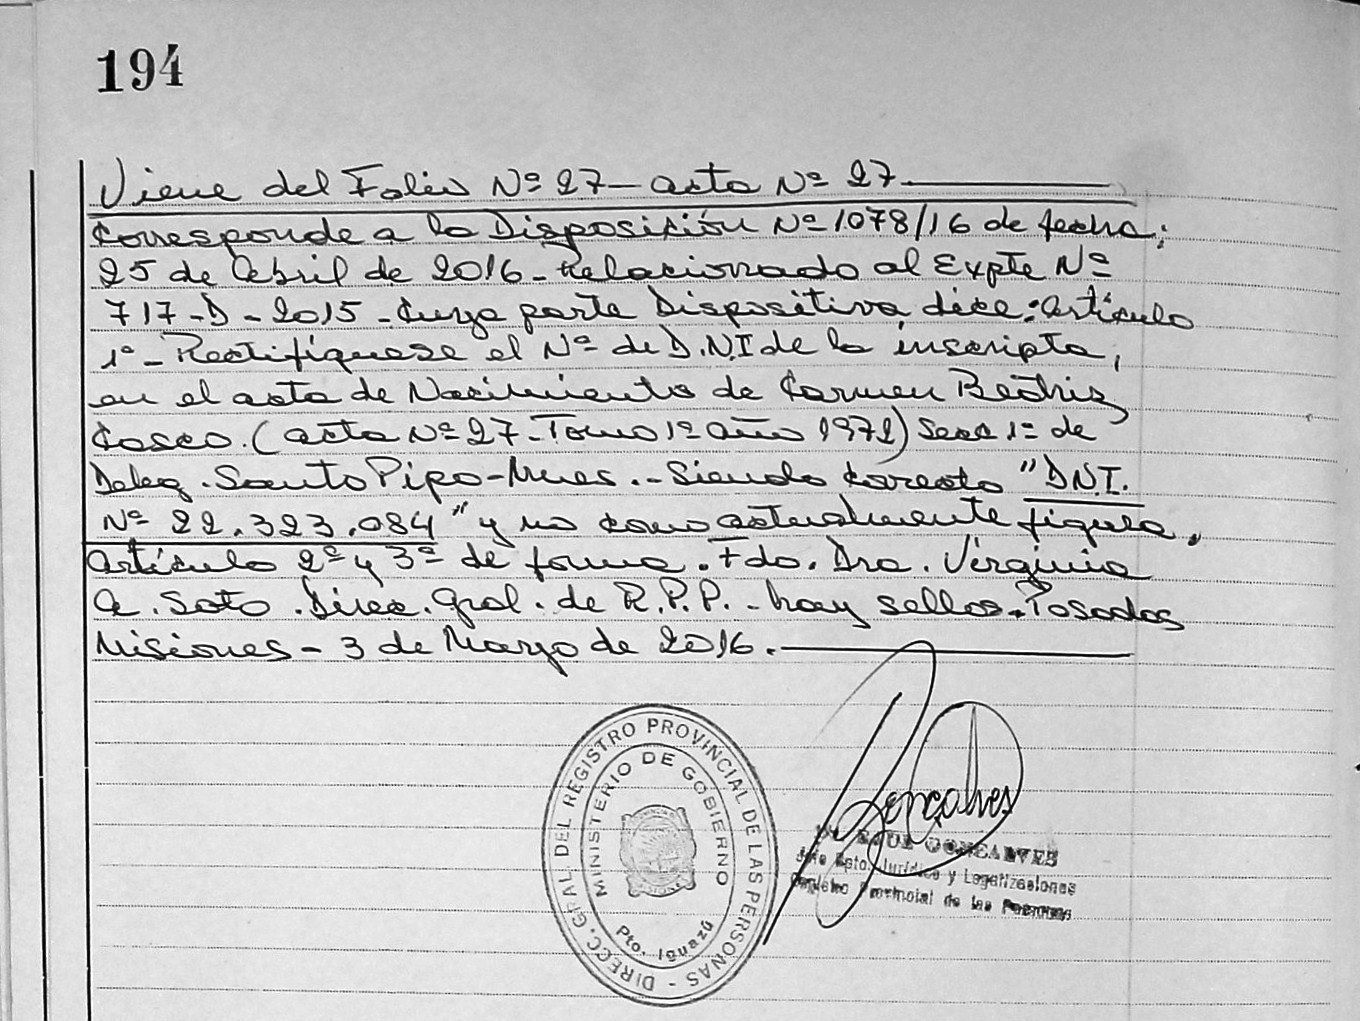 194
Viene del Folio Nº 27 - acta Nº 27
Corresponde a la Disposición Nº 1078/16 de fecha;
25 de Abril de 2016 - Relacionado al Expte Nº
717-D-2015 - Cuya parte Dispositiva dice: Artículo
1º - Rectifíquese el Nº de D.N.I de la inscripta,
en el acta de Nacimiento de Carmen Beatriz
Casco. (acta Nº 27 - Tomo 1º año 1972) Secc 1º de
Deleg. Santo Pipo - Mnes. - Siendo Correcto "D.N.I.
Nº 22.323.084" y no como actualmente figura.
Artículo 2º y 3º de forma. Fdo. Dra. Virginia
A. Soto. Direc. Gral. de R.P.P. - hay sellos. Posadas
Misiones - 3 de Marzo de 2016.
DIRECC. GRAL. DEL REGISTRO PROVINCIAL DE LAS PERSONAS -
MINISTERIO DE GOBIERNO
Pto. Iguazú
Gonçalves
RAUL GONCALVES
Jefe Dpto. Jurídico y Legalizaciones
Registro Provincial de las Personas